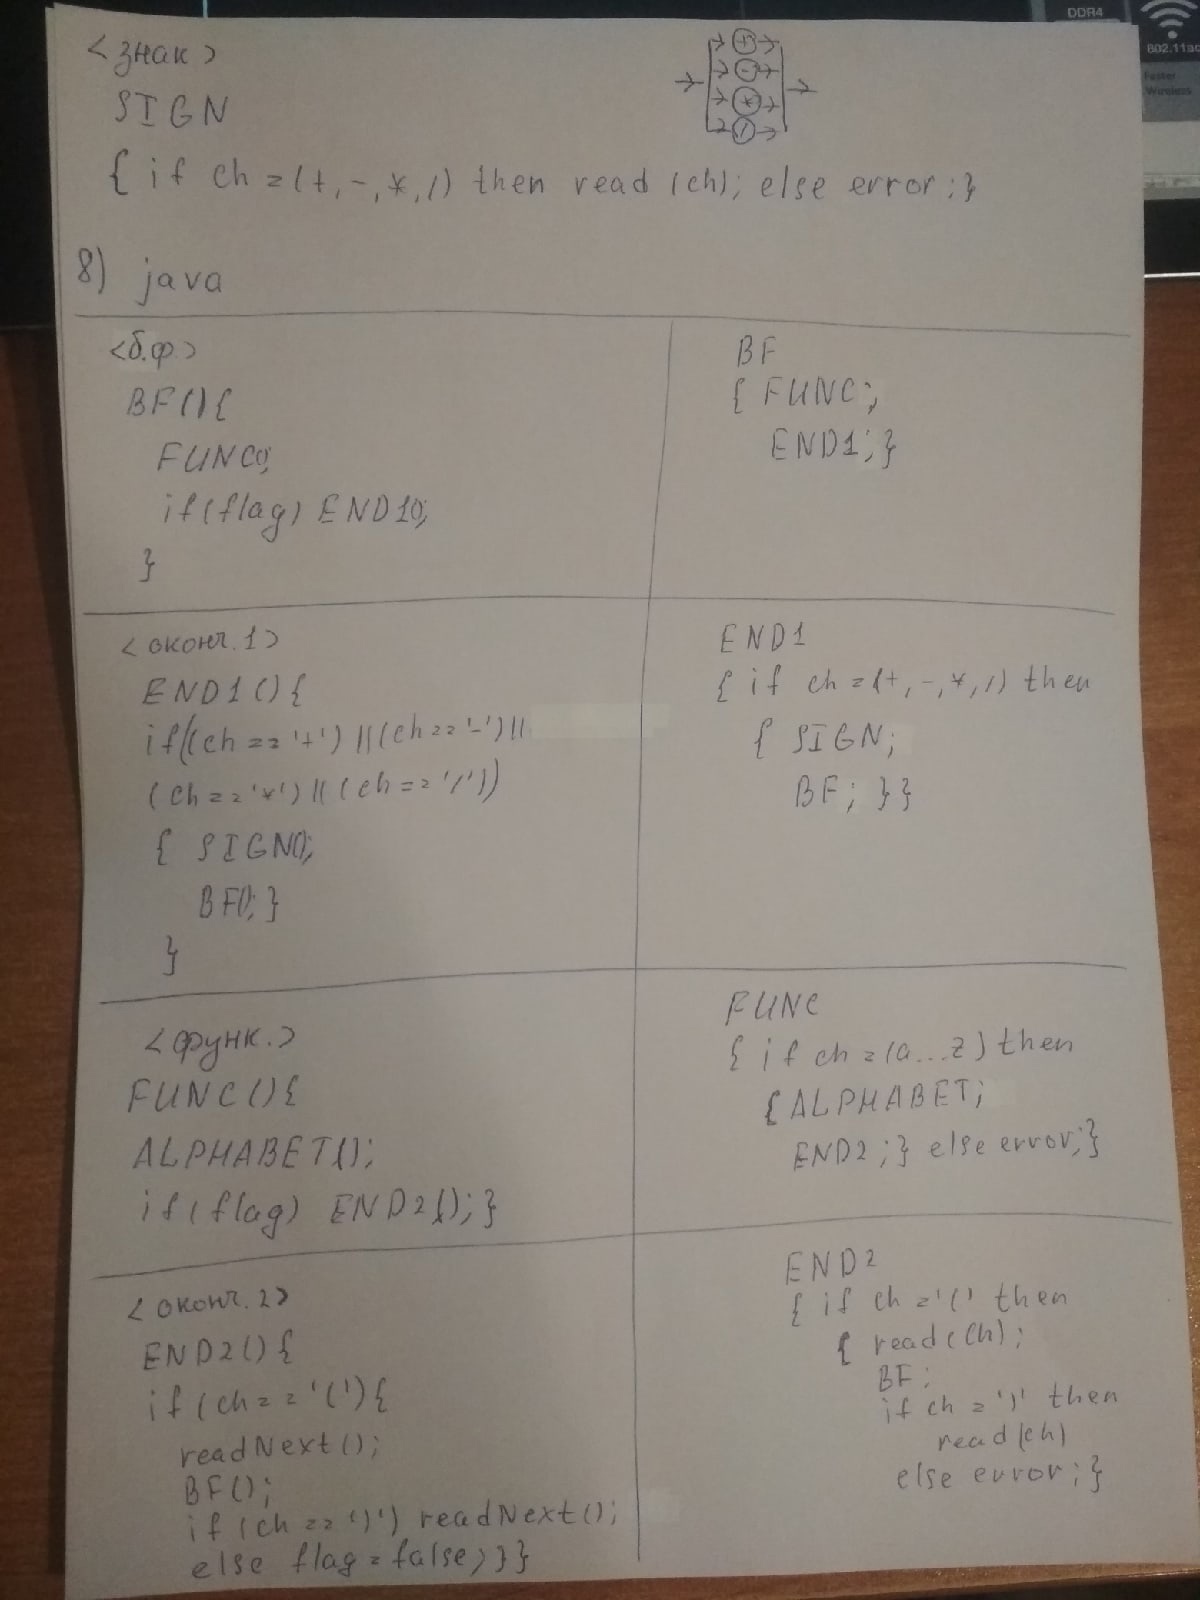 DDR4
802.11ac
Faster
Wireless
<знак>
+
-
*
/
SIGN
{ if ch = (+, -, *, /) then read (ch); else error; }
8) java
<б.ф.>
BF(){
FUNC();
if(flag) END1();
}
BF
{ FUNC;
END1; }
<оконч.1>
END1(){
if((ch == '+') || (ch == '-') ||
(ch == '*') || (ch == '/'))
{ SIGN();
BF(); }
}
END1
{ if ch = (+, -, *, /) then
{ SIGN;
BF; }}
<функ.>
FUNC(){
ALPHABET();
if(flag) END2(); }
FUNC
{ if ch = (a...z) then
{ ALPHABET;
END2; } else error; }
<оконч.2>
END2(){
if(ch == '('){
readNext();
BF();
if(ch == ')') readNext();
else flag = false; }}
END2
{ if ch = '(' then
{ read(ch);
BF;
if ch = ')' then
read(ch)
else error; }